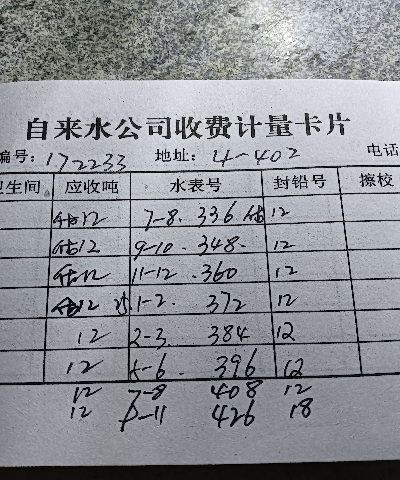 自来水公司收费计量卡片
编号: 172233 地址: 4-402 电话
卫生间 应收吨 水表号 封铅号 擦校
估12 7-8. 336 估 12
估12 9-10. 348. 12
估12 11-12. 360 12
估12 1-2. 372 12
12 2-3. 384 12
12 5-6. 396 12
12 7-8 408 12
12 -11 426 18